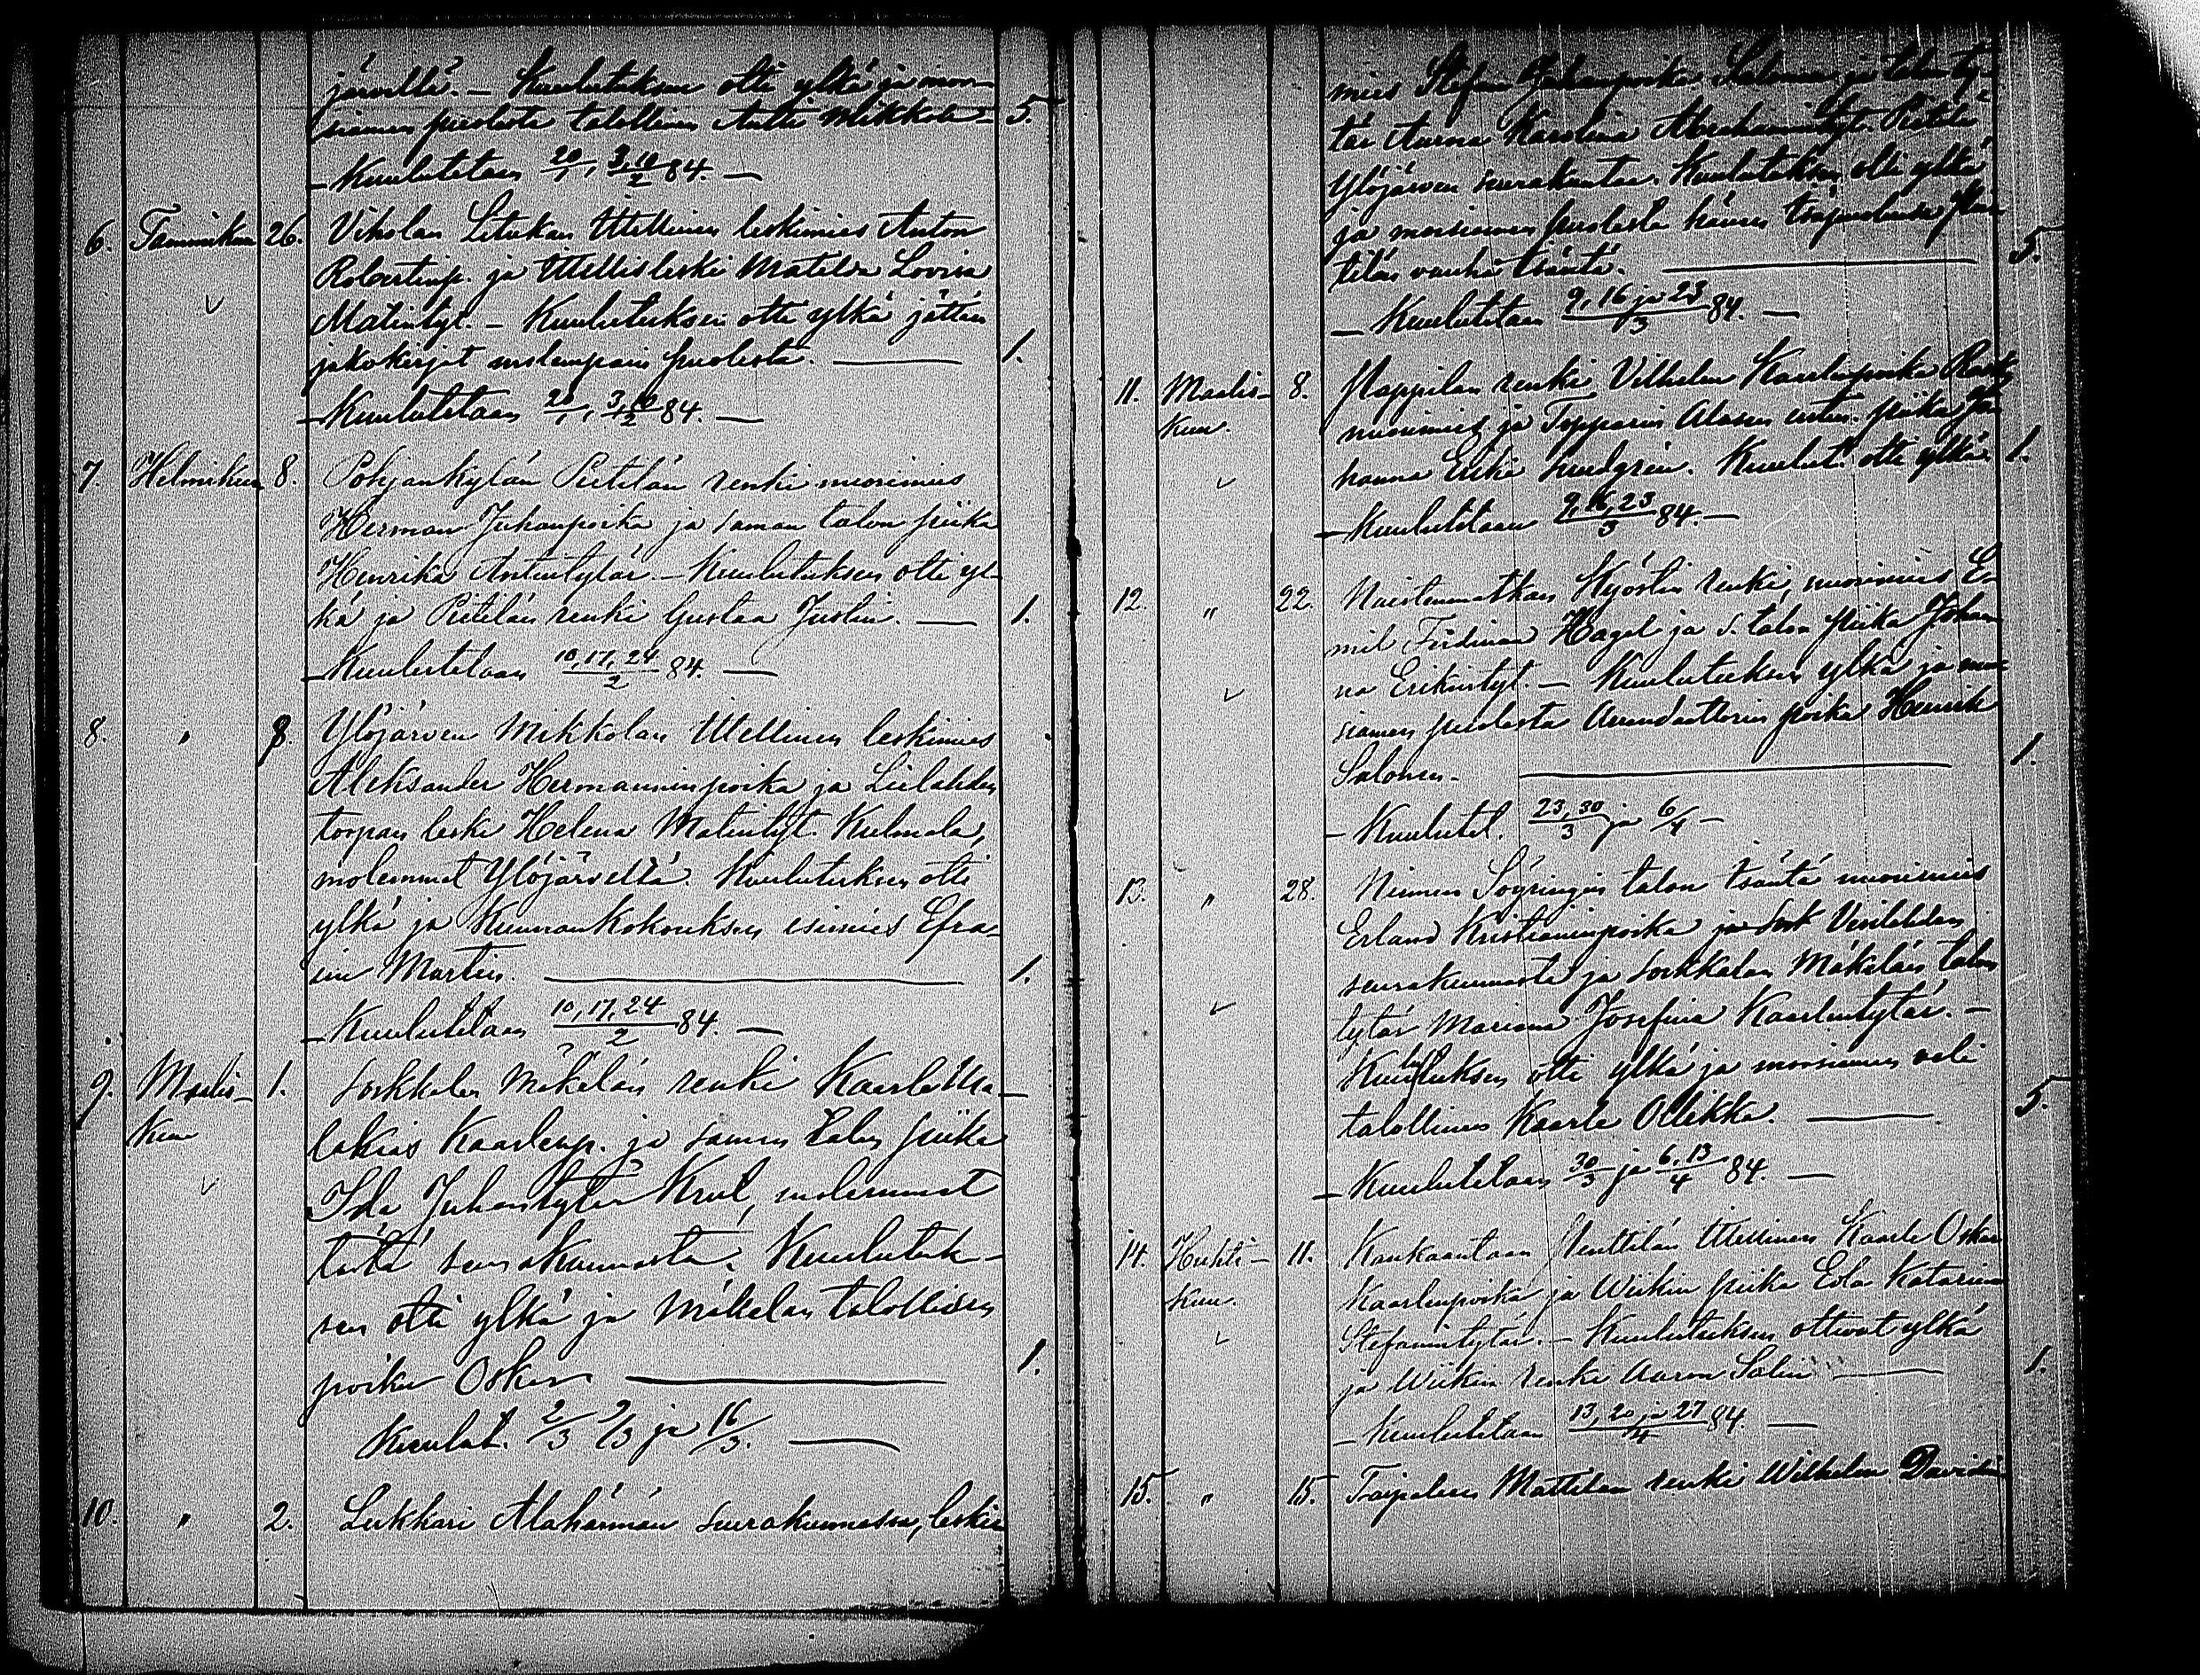 järveltä. – Kuulutuksen otti ylkä ja mor-
siamen puolesta talollinen Antti Mikkola – 5.
– Kuulutetaan 20/1, 3,10/2 84. –
6. Tammikuu 26. Viholan Litukan Itsellinen leskimies Anton
Robertinp. ja Itsellisleski Matilda Lovisa
Matintyt. – Kuulutuksen otti ylkä jättäen
jakokirjat molempain puolesta. – 1.
– Kuulutetaan 20/1, 3,10/2 84. –
7. Helmikuu 8. Pohjankylän Pietilän renki nuorimies
Herman Juhanpoika ja saman talon piika
Henrika Antintytär. – Kuulutuksen otti yl-
kä ja Pietilän renki Gustaa Juslin. – 1.
– Kuulutetaan 10,17,24/2 84. –
8. " 8. Ylöjärven Mikkolan Itsellinen leskimies
Aleksander Hermanninpoika ja Lielahden
torpan leski Helena Matintyt. Kulmala,
molemmat Ylöjärveltä. Kuulutuksen otti
ylkä ja Kunnankokouksen esimies Efra-
im Martin. – 1.
– Kuulutetaan 10,17,24/2 84. –
9. Maalis- 1. Sorkkalan Mäkelän renki Kaarle
kuu Kaarlenp. ja samen talon piika
Ida Juhantytär Krul, molemmat
tästä seurakunnasta. Kuulutuk-
sen otti ylkä ja Mäkelän talollisen
poika Oskar – 1.
Kuulut. 2/3 9/3 ja 16/3. –
10. " 2. Lukkari Alahärmän seurakunnassa, leski-
mies Stefan Juhanpoika Salomaa ja talonty-
tär Aurora Karolina Abrahamintyt. Pietilä
Ylöjärven seurakuntaa. Kuulutuksen otti ylkä
ja morsiamen puolesta hänen isäpuolensa
tilän vanha isäntä. – 5.
– Kuulutetaan 9,16 ja 23/3 84. –
11. Maalis- 8. Nappilan renki Vilhelm Kaarlenpoika
kuu. nuorimies ja Topparin Alasen entin. piika Jo-
hanna Erika Lundgren. Kuulut. otti ylkä. 1.
– Kuulutetaan 9,16,23/3 84. –
12. " 22. Naistenmatkan Kyöstin renki, nuorimies E-
mil Ferdinan Hagel ja s. talon piika Johan-
na Erikintyt. – Kuulutuksen ylkä ja mor-
siamen puolesta Arendaattorin poika Henrik
Salonen. – 1.
– Kuulutet. 23,30/3 ja 6/4 –
13. " 28. Niemen Söyringin talon isäntä nuorimies
Erland Kristianinpoika Vesilahden
seurakunnasta ja Sorkkalan Mäkelän talon
tytär Mariana Josefina Kaarlentytär. –
Kuulutuksen otti ylkä ja morsiamen veli
talollinen Kaarle Ollikka. – 5.
– Kuulutetaan 30/3 ja 6,13/4 84. –
14. Huhti- 11. Kankaantaan Penttilän Itsellinen Kaarle Oskar
kuu. Kaarlenpoika ja Wiikin piika Eva Katariina
Stefanintytär. – Kuulutuksen ottivat ylkä
ja Wiikin renki Aaron Salin – 1.
– Kuulutetaan 13,20 ja 27/4 84. –
15. " 15. Taipaleen Mattilan renki Wilhelm Davidin